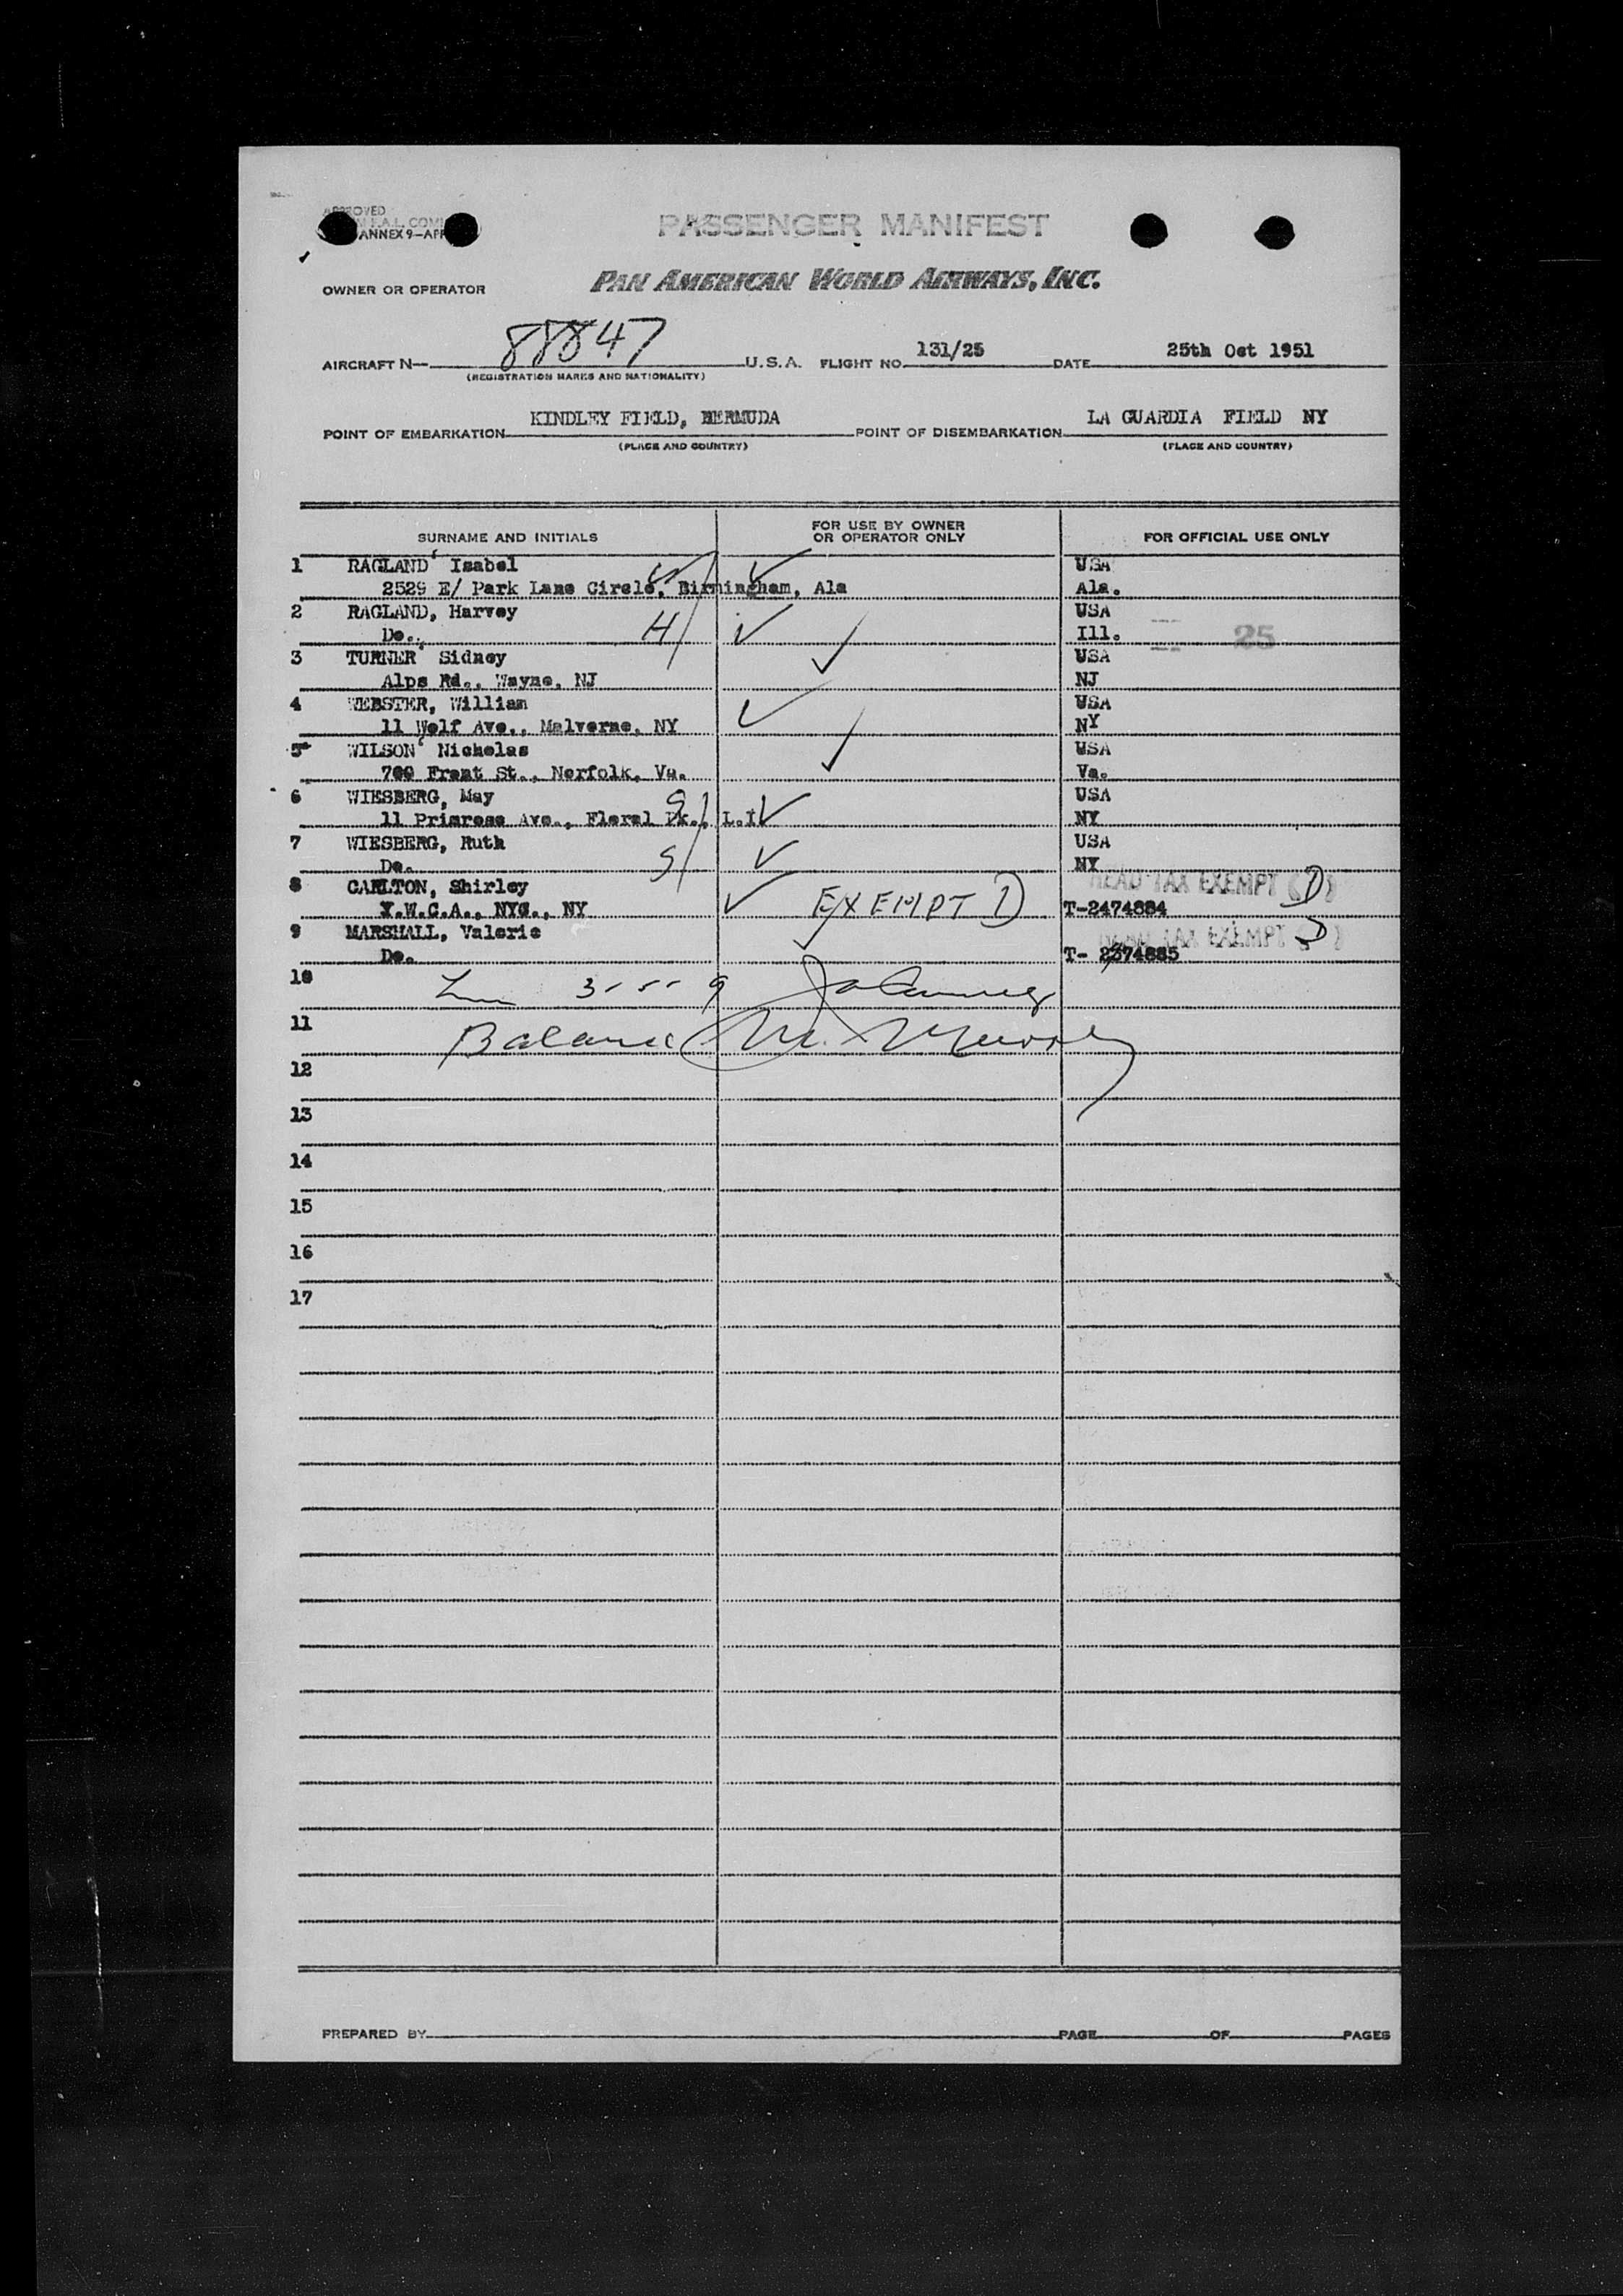 APPROVED
ANNEX 9-APP
PASSENGER MANIFEST
OWNER OR OPERATOR PAN AMERICAN WORLD AIRWAYS, INC.
AIRCRAFT N— 88847 U.S.A. FLIGHT NO. 131/25 DATE 25th Oct 1951
(REGISTRATION MARKS AND NATIONALITY)
POINT OF EMBARKATION KINDLEY FIELD, BERMUDA POINT OF DISEMBARKATION LA GUARDIA FIELD NY
(PLACE AND COUNTRY) (PLACE AND COUNTRY)
SURNAME AND INITIALS FOR USE BY OWNER OR OPERATOR ONLY FOR OFFICIAL USE ONLY
1 RAGLAND Isabel USA
2529 E/ Park Lane Circle, Birmingham, Ala Ala.
2 RAGLAND, Harvey USA
Do. H/ Ill. 25
3 TURNER Sidney USA
Alps Rd., Wayne, NJ NJ
4 WEBSTER, William USA
11 Wolf Ave., Malverne, NY NY
5 WILSON Nicholas USA
700 Front St., Norfolk, Va. Va.
6 WIESBERG, May USA
11 Primrose Ave., Floral Pk., L.I. NY
7 WIESBERG, Ruth USA
Do. S/ NY
8 CARLTON, Shirley HEAD TAX EXEMPT (D)
Y.W.C.A., NYC., NY EXEMPT D T-2474884
9 MARSHALL, Valerie HEAD TAX EXEMPT D
Do. T- 2374885
10
11 Balance
12
13
14
15
16
17
PREPARED BY PAGE OF PAGES